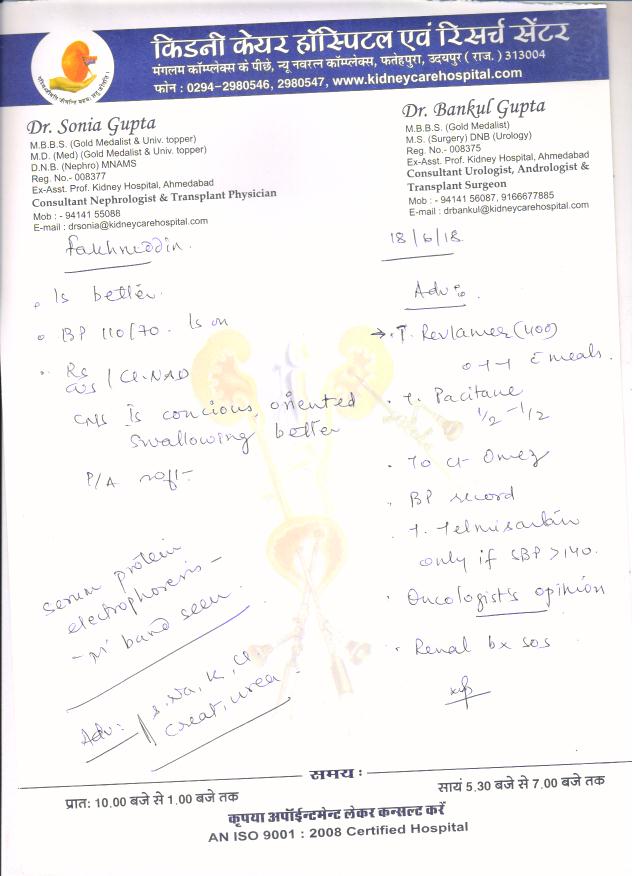 किडनी केयर हॉस्पिटल एवं रिसर्च सेंटर
मंगलम कॉम्प्लेक्स के पीछे, न्यू नवरत्न कॉम्प्लेक्स, फतेहपुरा, उदयपुर ( राज. ) 313004
फोन : 0294-2980546, 2980547, www.kidneycarehospital.com
Dr. Sonia Gupta
M.B.B.S. (Gold Medalist & Univ. topper)
M.D. (Med) (Gold Medalist & Univ. topper)
D.N.B. (Nephro) MNAMS
Reg. No.- 008377
Ex-Asst. Prof. Kidney Hospital, Ahmedabad
Consultant Nephrologist & Transplant Physician
Mob : - 94141 55088
E-mail : drsonia@kidneycarehospital.com
Dr. Bankul Gupta
M.B.B.S. (Gold Medalist)
M.S. (Surgery) DNB (Urology)
Reg. No.- 008375
Ex-Asst. Prof. Kidney Hospital, Ahmedabad
Consultant Urologist, Andrologist &
Transplant Surgeon
Mob : - 94141 56087, 9166677885
E-mail : drbankul@kidneycarehospital.com
fakhruddin.
18/6/18
Is better.
BP 110/70. Is on
Rs
CVS / Cl-NAD
CNS Is concious, oriented
swallowing better
P/A soft
serum protein
electrophoresis -
- 'm' band seen.
Adv: S. Na, K, Cl
creat, urea -
Adv:
→ T. Revlamer (400)
0-1-1 c meals.
T. Pacitane
1/2 - 1/2
To ct Omez
BP record
T. Telmisartan
only if SBP >140.
Oncologist's opinion
Renal bx sos
समय :
प्रातः 10.00 बजे से 1.00 बजे तक
सायं 5.30 बजे से 7.00 बजे तक
कृपया अपॉईन्टमेन्ट लेकर कन्सल्ट करें
AN ISO 9001 : 2008 Certified Hospital